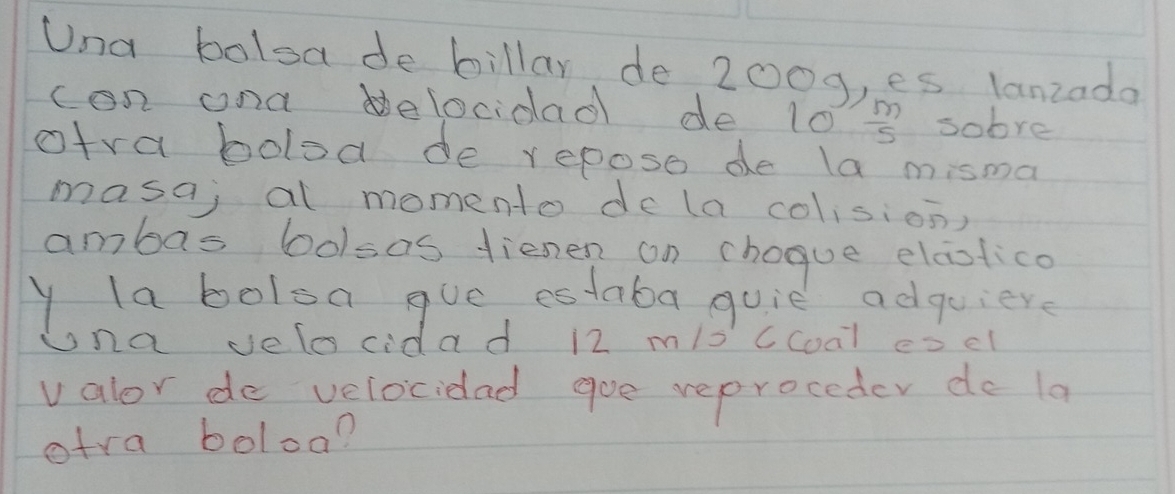 Una bolsa de billar de 200g, es lanzada
con una velocidad de 10 m/s sobre
otra bolsa de reposo de la misma
masa; al momento de la colisión,
ambas bolsas tienen un choque elástico
y la bolsa que estaba quie adquiere
Una velocidad 12 m/s ¿cual es el
valor de velocidad que reproceder de la
otra bolsa?